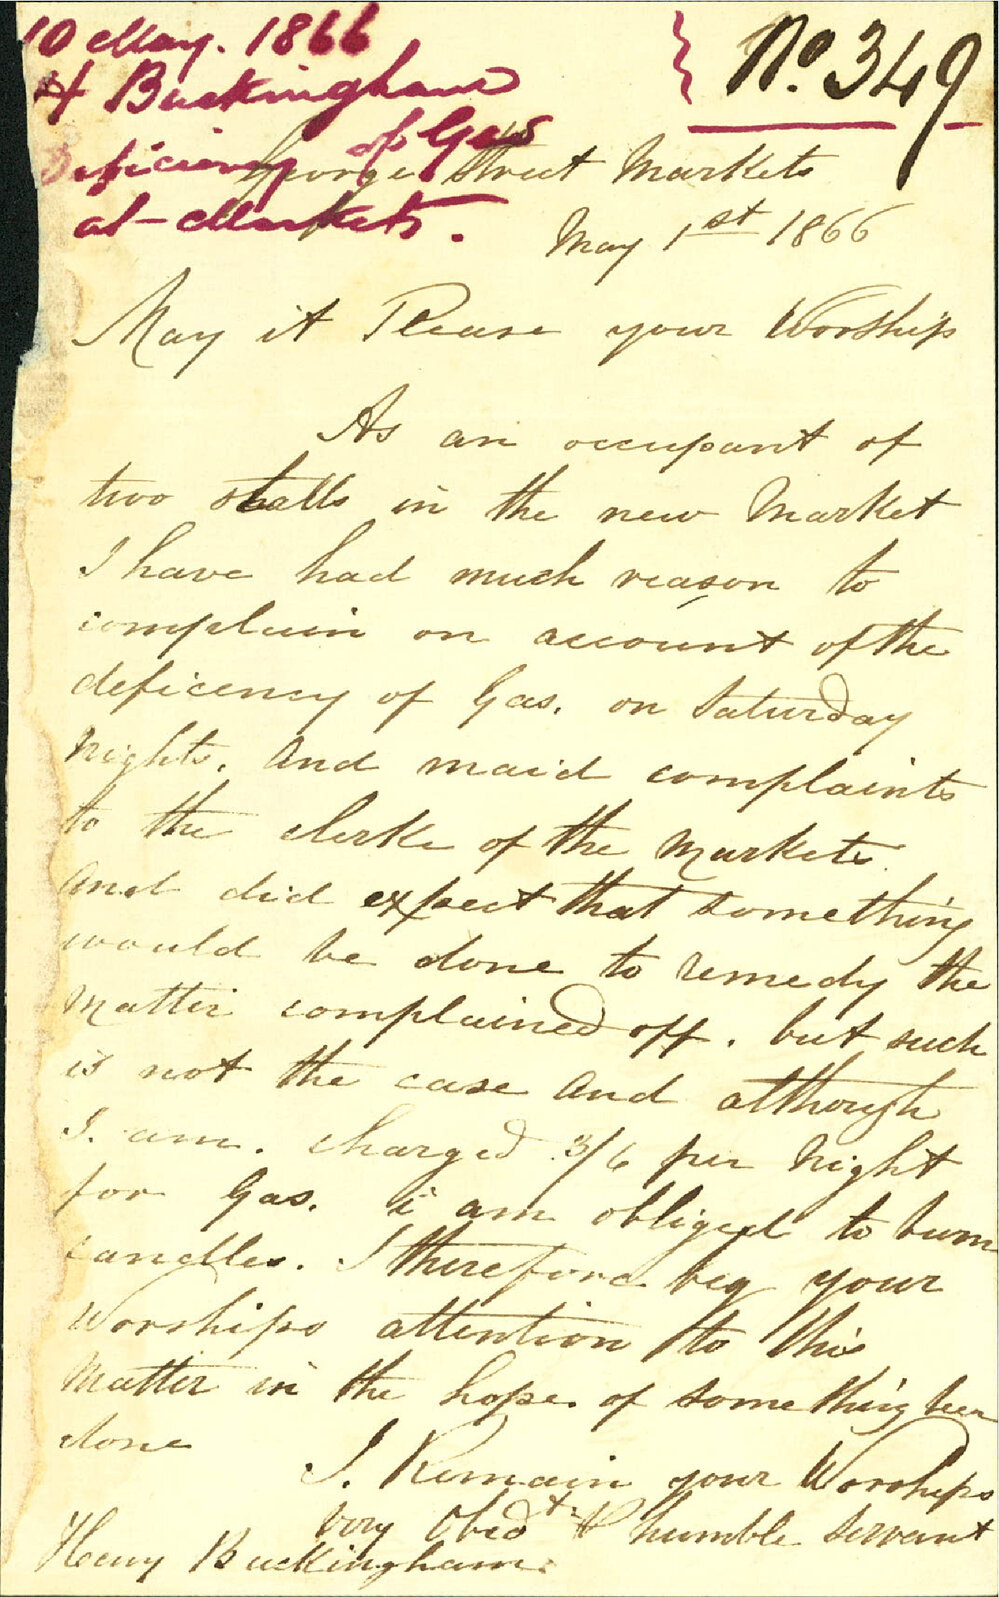 10 May. 1866
H Buckingham
Deficiency of Gas
at Markets.
No. 349
George Street Markets
May 1st 1866
May it Please your Worships
As an occupant of
two stalls in the new Market
I have had much reason to
complain on account of the
deficency of Gas. on Saturday
nights. And maid complaints
to the clerke of the Markets.
And did expect that something
would be done to remedy the
Matter complained off. but such
is not the case and although
I. am. charged 3/6 per Night
for Gas. i am obliged to burn
candles. I therefore beg your
Worships attention to this
Matter in the hope of something been
done
I. Remain your Worships
very Obedt & humble servant
Henry Buckingham.